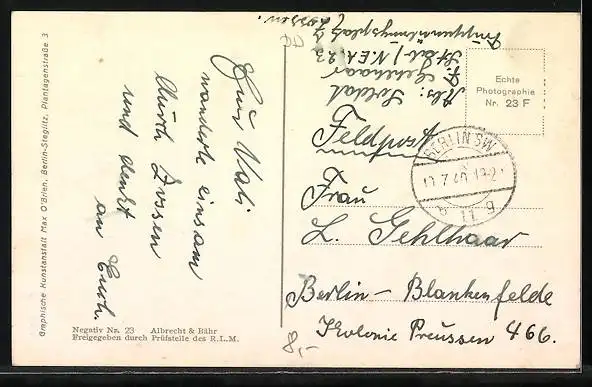 Abs: Soldat
F. Gehlhaar
Stab / N.E.A. 23
Truppenübungsplatz
Zossen.
Euer Vati
wanderte einsam
durch Zossen
und denkt
an Euch.
Feldpost
Frau
L. Gehlhaar
Berlin - Blankenfelde
Kolonie Preussen 466.
8,-
Echte
Photographie
Nr. 23 F
BERLIN SW
11
Graphische Kunstanstalt Max O'Brien, Berlin-Steglitz, Plantagenstraße 3
Negativ Nr. 23 Albrecht & Bähr
Freigegeben durch Prüfstelle des R.L.M.